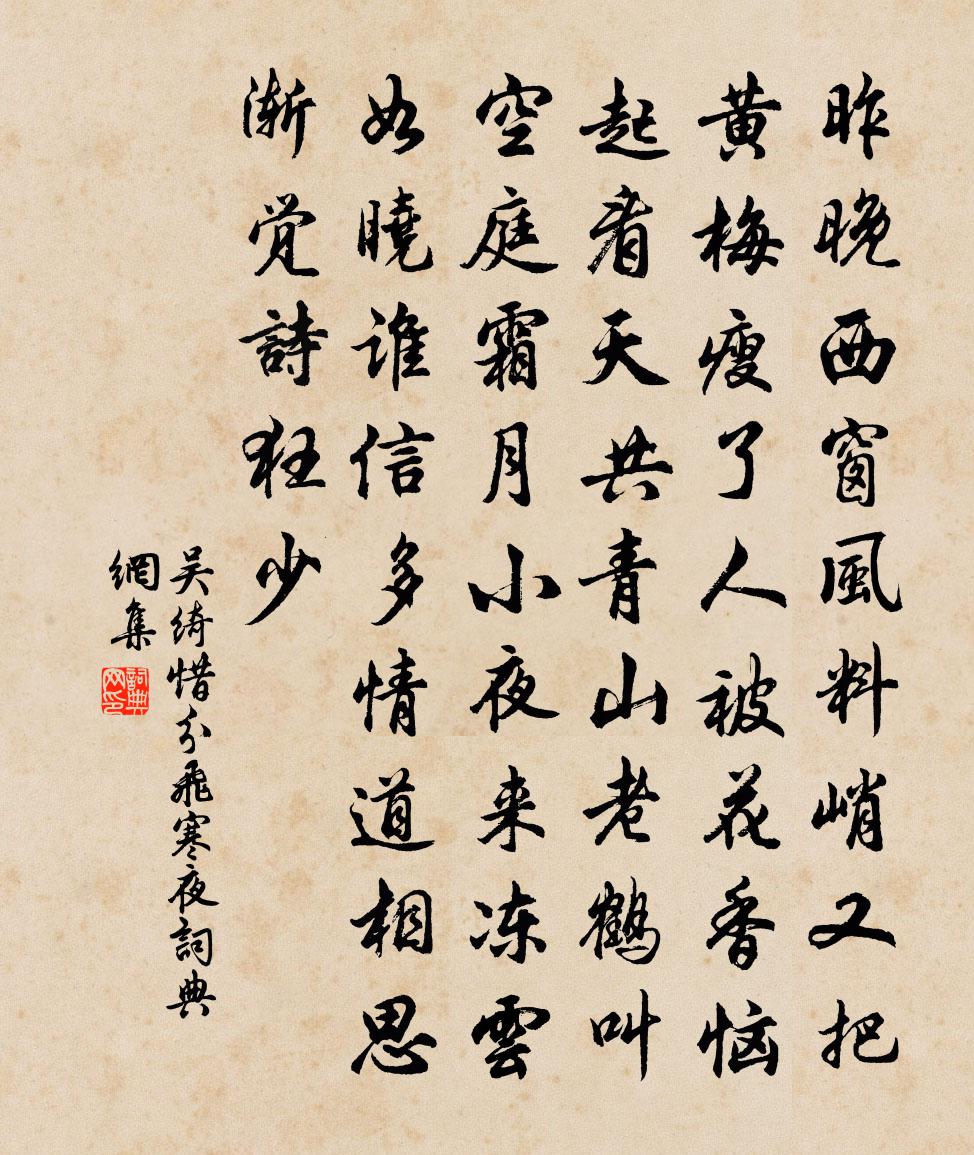 昨晚西窗風料峭又把
黃梅瘦了人被花香恼
起看天共青山老鹤叫
空庭霜月小夜来冻雲
如曉谁信多情道相思
渐觉詩狂少
吴绮惜分飛寒夜詞典
網集
詞典
网印